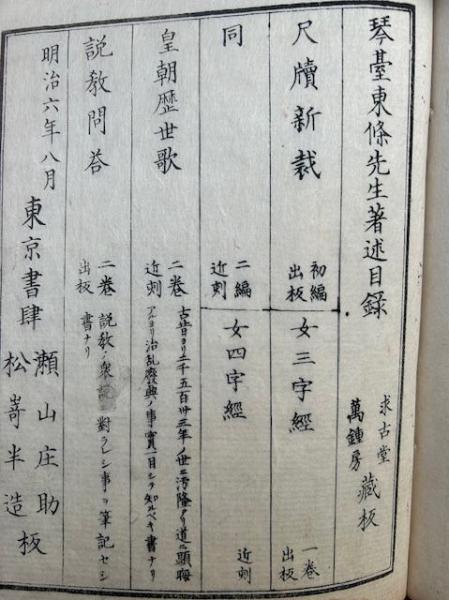 琴臺東條先生著述目錄
求古堂
萬鍾房
藏板
尺牘新裁
初編
出板
女三字經
一卷
出板
同
二編
近刻
女四字經
近刻
皇朝歷世歌
二卷
近刻
古昔ヨリ二千五百卅三年ノ世ニ汚隆アリ道ニ顯晦
アルヨリ治乱廢興ノ事實一目シテ知ルベキ書ナリ
説教問答
二卷
出板
説教ノ衆説ニ對ラレシ事ヲ筆記セシ
書ナリ
明治六年八月
東京書肆
瀬山庄助
松嵜半造
板